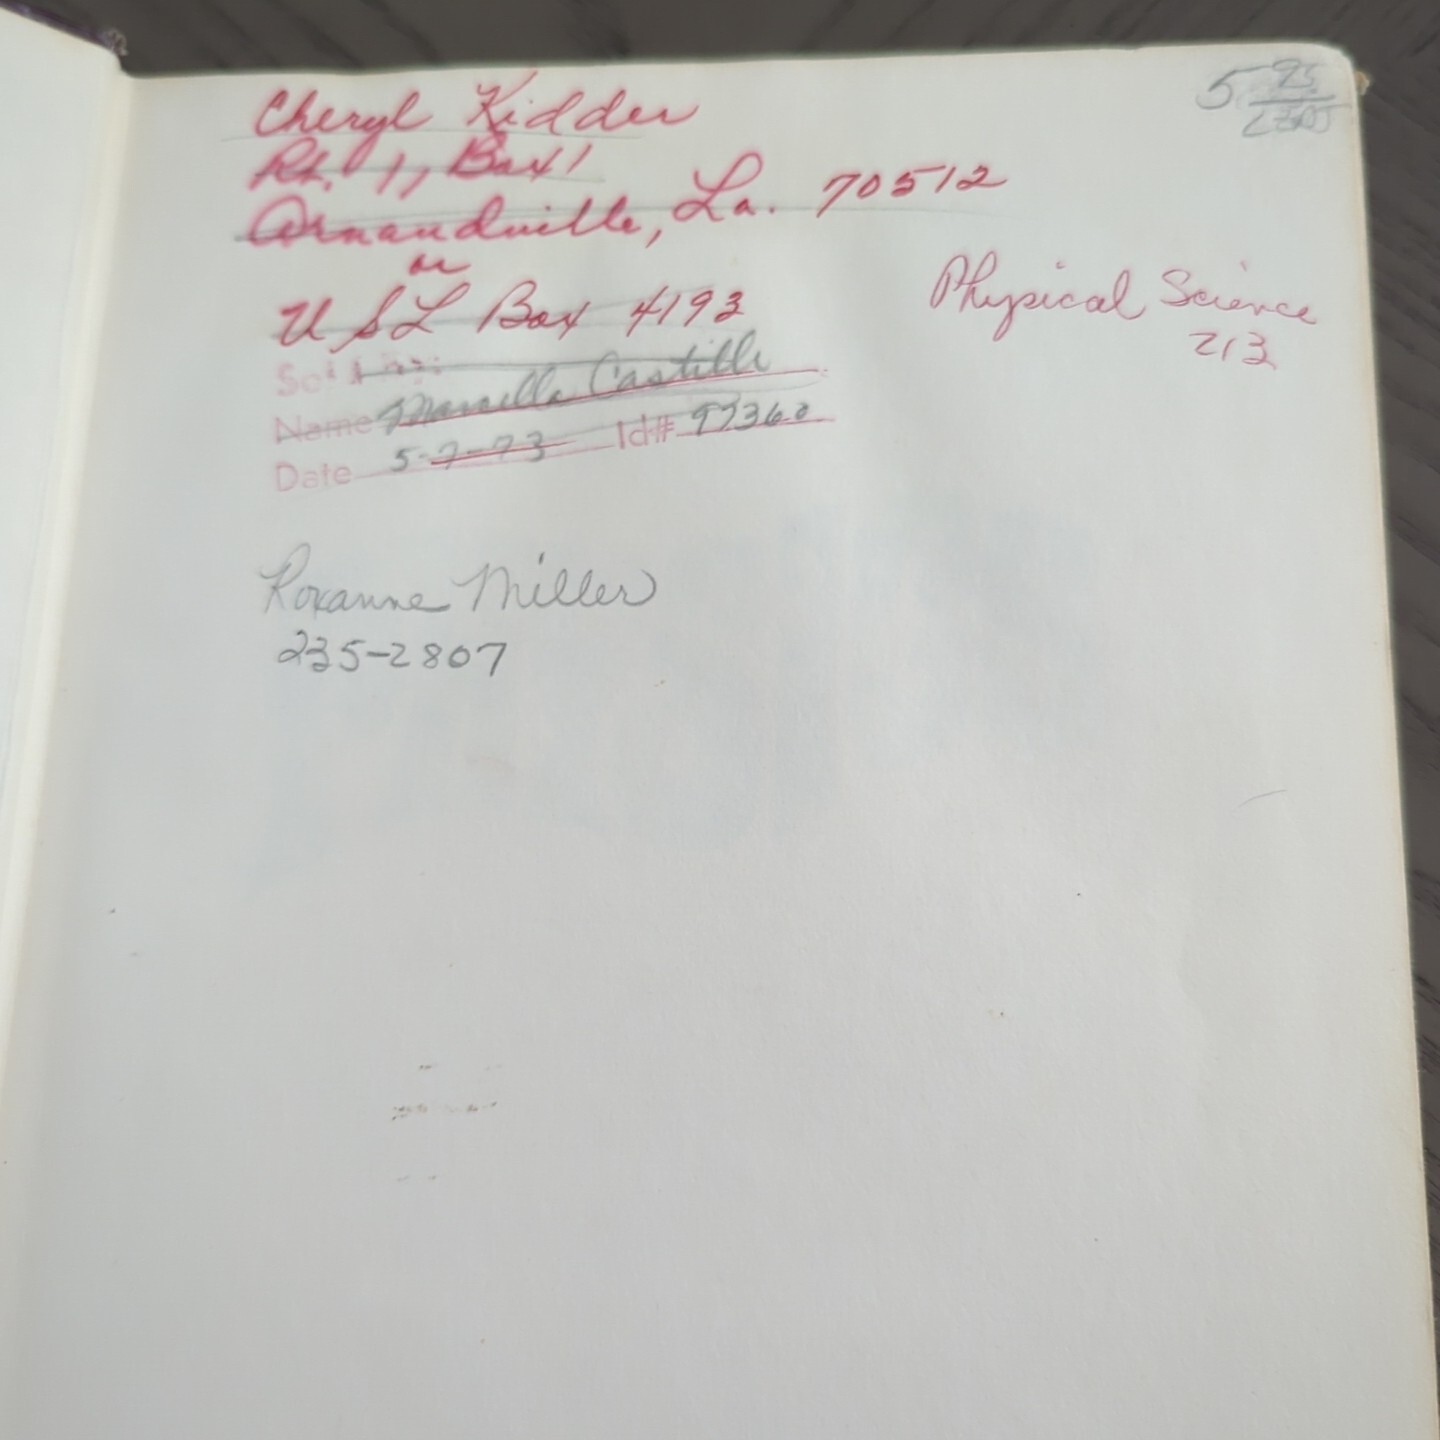 5 95
Cheryl Kidder
Rt. 1, Box 1
Arnaudville, La. 70512
or
USL Box 4193
Physical Science
213
Name Marcella Castille
Date 5-7-73 Id# 97360
Roxanne Miller
235-2807